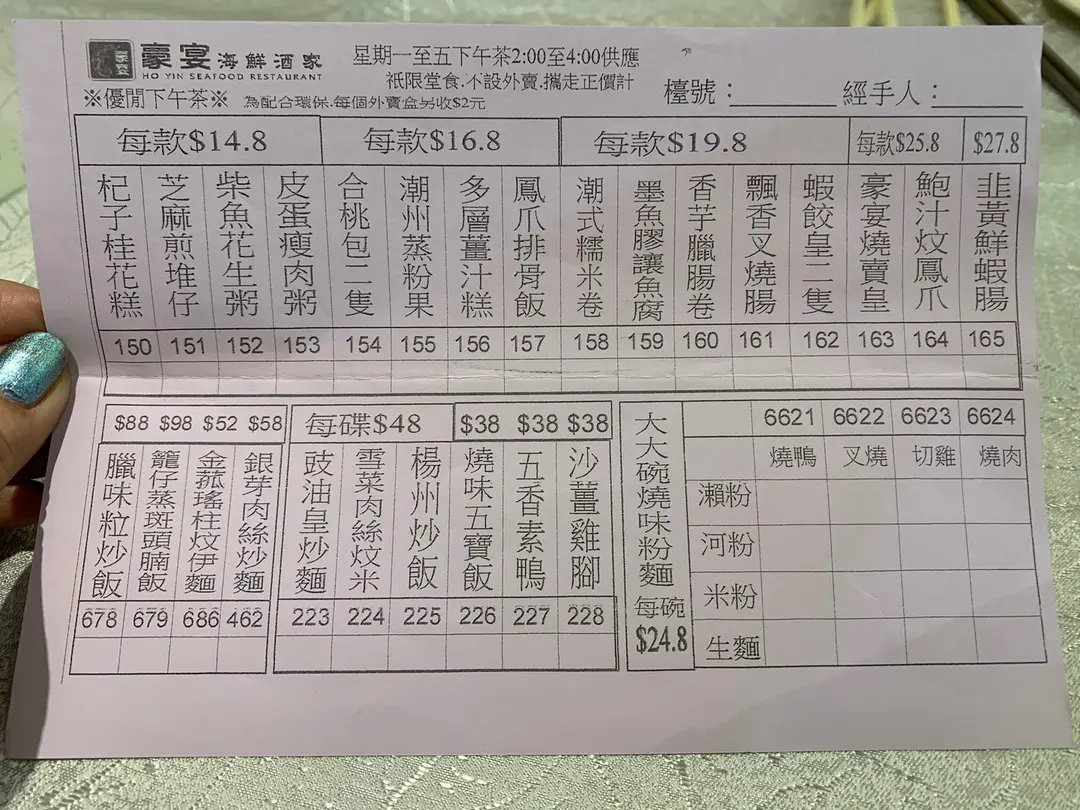 豪宴
豪宴海鮮酒家
HO YIN SEAFOOD RESTAURANT
星期一至五下午茶2:00至4:00供應
祇限堂食.不設外賣.攜走正價計
※優閒下午茶※
為配合環保.每個外賣盒另收$2元
檯號：
經手人：
每款$14.8
每款$16.8
每款$19.8
每款$25.8
$27.8
杞子桂花糕
芝麻煎堆仔
柴魚花生粥
皮蛋瘦肉粥
合桃包二隻
潮州蒸粉果
多層薑汁糕
鳳爪排骨飯
潮式糯米卷
墨魚膠讓魚腐
香芋臘腸卷
飄香叉燒腸
蝦餃皇二隻
豪宴燒賣皇
鮑汁炆鳳爪
韭黃鮮蝦腸
150 151 152 153 154 155 156 157 158 159 160 161 162 163 164 165
$88 $98 $52 $58
每碟$48
$38 $38 $38
臘味粒炒飯
籠仔蒸斑頭腩飯
金菰瑤柱炆伊麵
銀芽肉絲炒麵
豉油皇炒麵
雪菜肉絲炆米
楊州炒飯
燒味五寶飯
五香素鴨
沙薑雞腳
678 679 686 462
223 224 225 226 227 228
大大碗燒味粉麵
每碗
$24.8
6621 6622 6623 6624
燒鴨 叉燒 切雞 燒肉
瀨粉
河粉
米粉
生麵